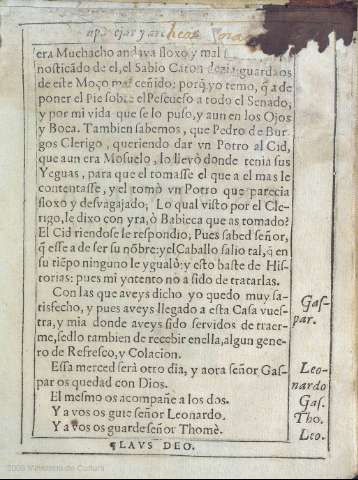 era Muchacho andava floxo y mal
nosticãdo de el, el Sabio Caton dezia: guardaos
de este Moço mal ceñido: porq̃ yo temo, q̃ a de
poner el Pie sobre el Pescueso a todo el Senado,
y por mi vida que se lo puso, y aun en los Ojos
y Boca. Tambien sabemos, que Pedro de Bur
gos Clerigo, queriendo dar vn Potro al Cid,
que aun era Mosuelo, lo llevò donde tenia sus
Yeguas, para que el tomasse el que a el mas le
contentasse, y el tomò vn Potro que parecia
floxo y desvagajado; Lo qual visto por el Cle-
rigo, le dixo con yra, ò Babieca que as tomado?
El Cid riendose le respondio; Pues sabed señor,
q̃ esse a de ser su nõbre: y el Caballo salio tal, q̃ en
su tiẽpo ninguno le ygualò: y esto baste de His-
torias: pues mi yntento no a sido de tratarlas.
Con las que aveys dicho yo quedo muy sa-
tisfecho, y pues aveys llegado a esta Casa vues-
tra, y mia donde aveys sido servidos de traer-
me, sedlo tambien de recebir en ella, algun gene
ro de Refresco, y Colacion.
Gas-
par.
Essa merced serà otro dia, y aora señor Gas-
par os quedad con Dios.
Leo-
nardo
El mesmo os acompañe a los dos.
Gas.
Y a vos os guie señor Leonardo.
Tho.
Y a vos os guarde señor Thomè.
Leo.
¶LAVS DEO.
2009 Ministerio de Cultura